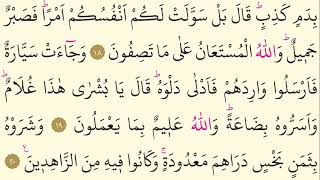 بِدَمٍ كَذِبٍۜ قَالَ بَلْ سَوَّلَتْ لَكُمْ اَنْفُسُكُمْ اَمْرًاۜ فَصَبْرٌ
جَم۪يلٌۜ وَاللّٰهُ الْمُسْتَعَانُ عَلٰى مَا تَصِفُونَ ١٨ وَجَٓاءَتْ سَيَّارَةٌ
فَاَرْسَلُوا وَارِدَهُمْ فَاَدْلٰى دَلْوَهُۜ قَالَ يَا بُشْرٰى هٰذَا غُلَامٌۜ
وَاَسَرُّوهُ بِضَاعَةًۜ وَاللّٰهُ عَل۪يمٌ بِمَا يَعْمَلُونَ ١٩ وَشَرَوْهُ
بِثَمَنٍ بَخْسٍ دَرَاهِمَ مَعْدُودَةٍۚ وَكَانُوا ف۪يهِ مِنَ الزَّاهِد۪ينَ ٢٠ ع